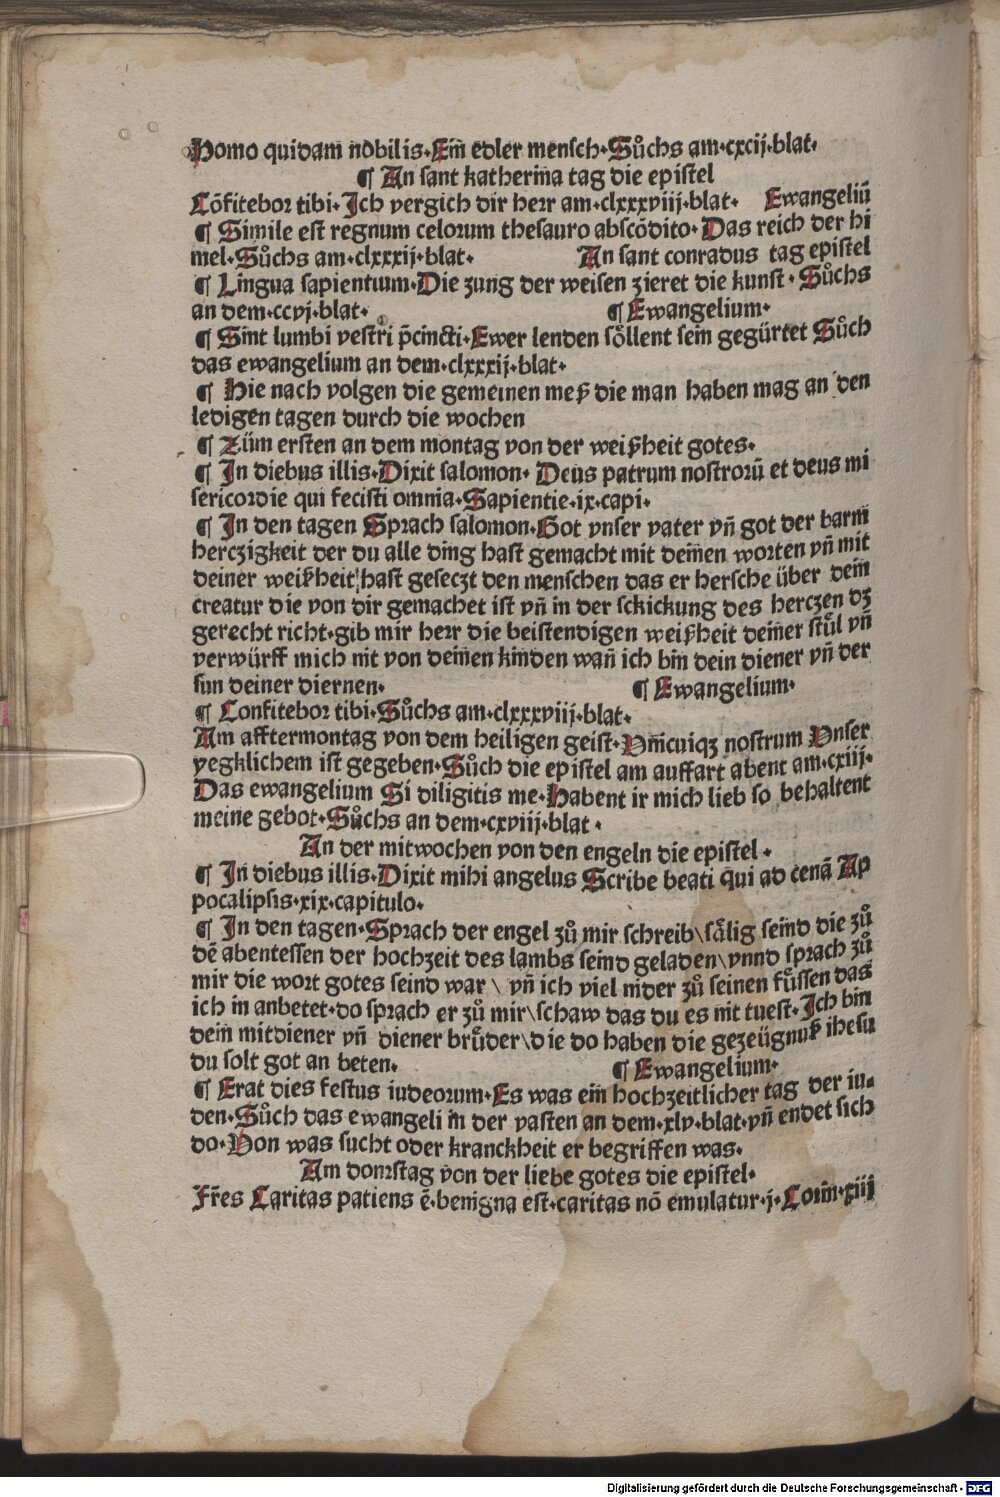 Homo quidam nobilis·Ein edler mensch·Sůchs am·cxcij·blat·
¶ An sant katherina tag die epistel
Cōfitebor tibi·Ich vergich dir herr am·clxxxviij·blat· Ewangeliū
¶ Simile est regnum celorum thesauro abscōdito·Das reich der hi
mel·Sůchs am·clxxxij·blat· An sant conradus tag epistel
¶ Lingua sapientium·Die zung der weisen zieret die kunst·Sůchs
an dem·ccvj·blat· ¶ Ewangelium·
¶ Sint lumbi vestri p̄cincti·Ewer lenden söllent sein gegürtet Sůch
das ewangelium an dem·clxxxij·blat·
¶ Hie nach volgen die gemeinen meß die man haben mag an den
ledigen tagen durch die wochen
¶ Züm ersten an dem montag von der weißheit gotes·
¶ In diebus illis·Dixit salomon· Deus patrum nostrorū et deus mi
sericordie qui fecisti omnia·Sapientie·ix·capi·
¶ In den tagen Sprach salomon·Got vnser vater vn̄ got der barm
herczigkeit der du alle ding hast gemacht mit deinen worten vn̄ mit
deiner weißheit hast geseczt den menschen das er hersche über dein
creatur die von dir gemachet ist vn̄ in der schickung des herczen dz
gerecht richt·gib mir herr die beistendigen weißheit deiner stül vn̄
verwürff mich nit von deinen kinden wan̄ ich bin dein diener vn̄ der
sun deiner diernen· ¶ Ewangelium·
¶ Confitebor tibi·Sůchs am·clxxxviij·blat·
Am afftermontag von dem heiligen geist·Vnicuiqz nostrum Vnser
yegklichem ist gegeben·Sůch die epistel am auffart abent am·cxiij·
Das ewangelium Si diligitis me·Habent ir mich lieb so behaltent
meine gebot·Sůchs an dem·cxviij·blat·
An der mitwochen von den engeln die epistel·
¶ In diebus illis·Dixit mihi angelus Scribe beati qui ad cenā Ap
pocalipsis·xix·capitulo·
¶ In den tagen·Sprach der engel zů mir schreib\sälig seind die zů
dē abentessen der hochzeit des lambs seind geladen\vnnd sprach zů
mir die wort gotes seind war\ vn̄ ich viel nider zů seinen füssen das
ich in anbetet·do sprach er zů mir\schaw das du es nit tuest·Ich bin
dein mitdiener vn̄ diener brüder\die do haben die gezeügnuß ihesu
du solt got an beten· ¶ Ewangelium·
¶ Erat dies festus iudeorum·Es was ein hochzeitlicher tag der iu-
den·Sůch das ewangeli in der vasten an dem·xlv·blat·vn̄ endet sich
do·Von was sucht oder kranckheit er begriffen was·
Am donrstag von der liebe gotes die epistel·
Fr̄es Caritas patiens ē·benigna est·caritas nō emulatur·j·Corin̄·xiij
Digitalisierung gefördert durch die Deutsche Forschungsgemeinschaft - DFG